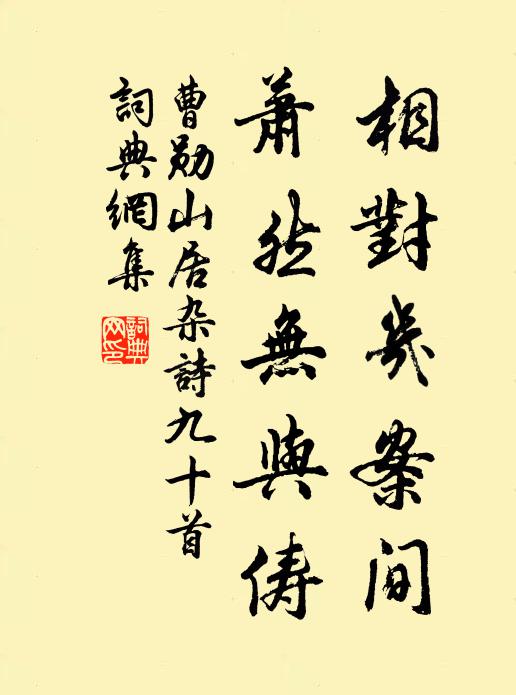 相對幾案間
蕭然無與儔
曹勛山居杂詩九十首
詞典網集
詞典网印